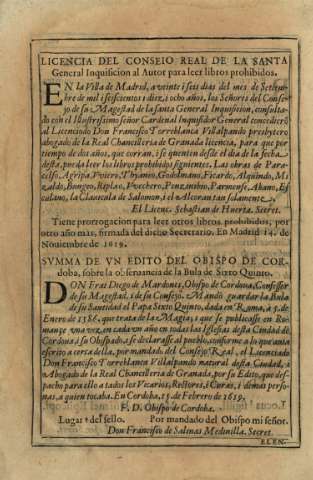 LICENCIA DEL CONSEIO REAL DE LA SANTA
General Inquisicion al Autor para leer libros prohibidos.
EN la Villa de Madrid, a veinte i seis dias del mes de Setiem-
bre de mil i seiscientos i diez i ocho años, los Señores del Conse-
jo de su Magestad de la santa General Inquisicion, consulta-
do con el Illustrissimo señor Cardenal Inquisidor General concedierō
al Licenciado Don Francisco Torreblanca Villalpando presbytero
abogado de la Real Chancilleria de Granada licencia, para que por
tiempo de dos años, que corran, i se quenten desde el dia de la fecha
desta, pueda leer los libros prohibidos siguientes. Las obras de Para-
celso, Agripa, Vviero, Thyaneo, Godelmano, Ficardo, Alquindo, Mi-
zaldo, Bungeo, Replao, Vvechero, Ponzinibio, Parmense, Abano, Es
culano, la Clauicula de Salomon, i el Alcoran tan solamente.
El Licenc. Sebastian de Huerta. Secret.
Tiene prorrogacion para leer otros libros prohibidos, por
otro año mas, firmada del dicho Secretario. En Madrid 14. de
Nouiembre de 1619.
SVMMA DE VN EDITO DEL OBISPO DE COR-
doba, sobre la obseruancia de la Bula de Sixto Quinto.
DON Fras Diego de Mardones, Obispo de Cordoua, Confessor
de su Magestad, i de su Consejo. Mandò guardar la Bula
de su Santidad el Papa Sixto Quinto, dada en Roma, a 5. de
Enero de 1586. que trata de la Magia; i que se publicasse en Ro-
mançe vna vez, en cada vn año en todas las Iglesias desta Ciudad de
Cordoua, i su Obispado, i se declarasse al pueblo, conforme a lo que auia
escrito a cerca dello, por mandado del Consejo Real, el Licenciado
Don Francisco Torreblanca Villalpando natural desta Ciudad, i
Abogado de la Real Chancilleria de Granada, por su Edito, que des-
pachò para ello a todos los Vicarios, Rectores, i Curas, i demas perso-
nas, a quien tocaba. En Cordoba, 15. de Febrero de 1619.
F. D. Obispo de Cordoba.
Lugar † del sello. Por mandado del Obispo mi señor.
Don Francisco de Salinas Medinilla. Secret.
ELEN-